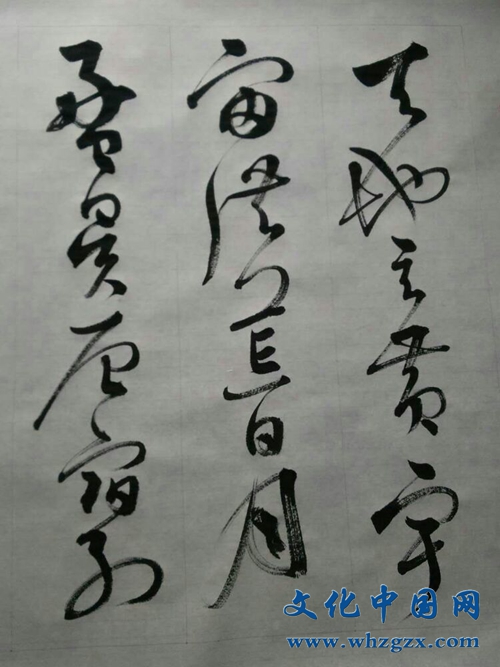 天地玄黄宇
宙洪荒日月
盈昃辰宿列
文化中国网
www.whzgzx.com